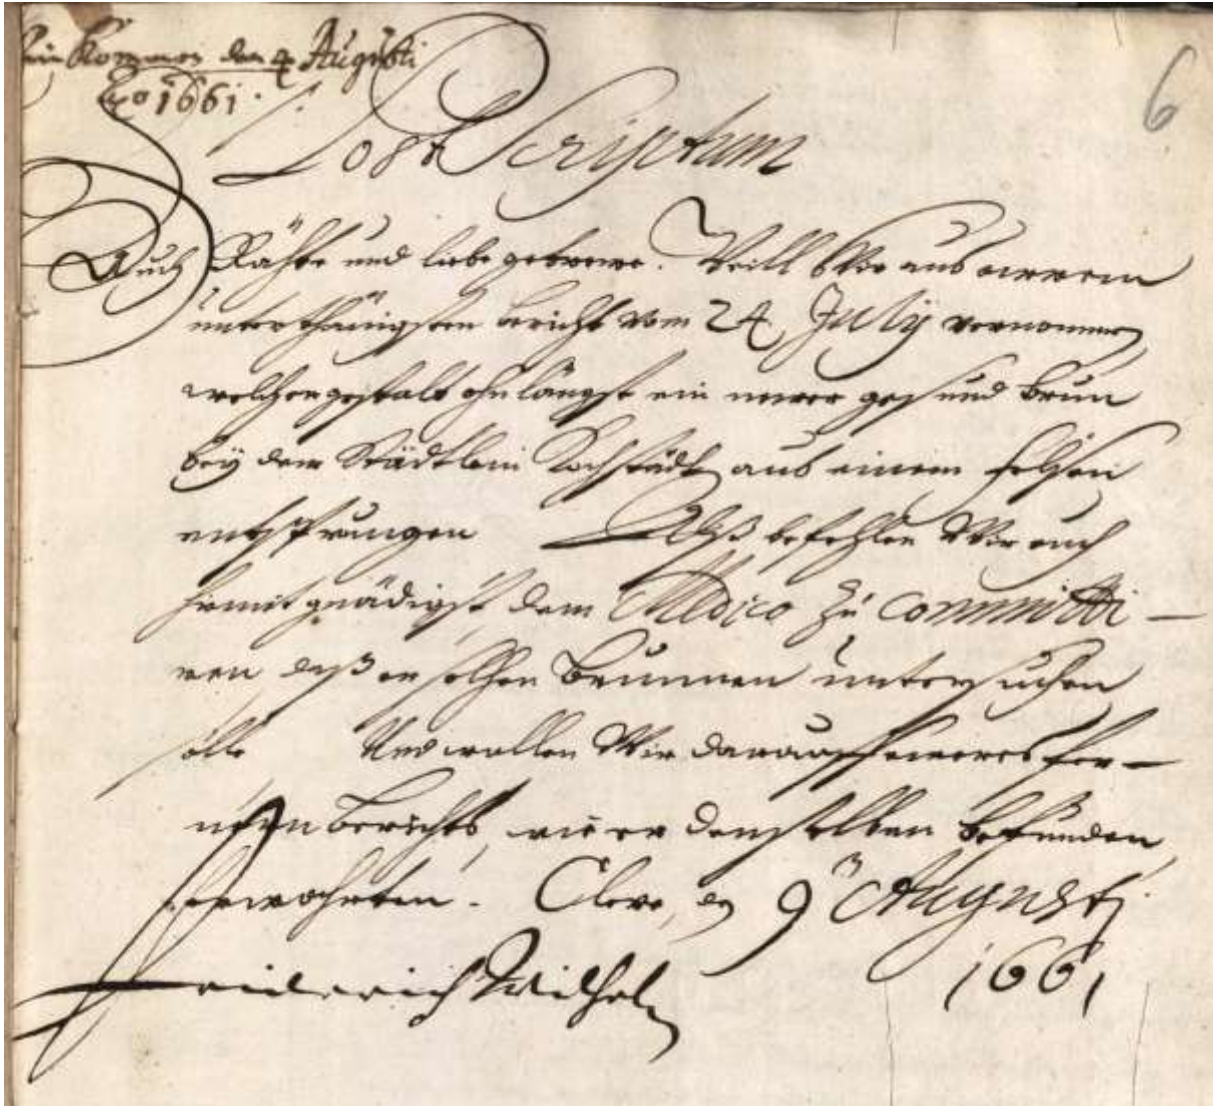 ein kommen den 4 Augusti
Ao 1661.
6
Post Scriptum
Auch Rähte und liebe getrewe. Weill Wir aus ewrem
unterthänigsten bericht vom 24 July vernommen
welchergestalt ohnlängst ein newer gesund brun
bey dem Städtlein Kochstädt aus einem felsen
entsprungen Alß befehlen Wir euch
hiemit gnädigst, dem Medico zu committi-
ren daß er solchen Brunnen untersuchen
solle Und wollen Wir darauff eweres fer-
nern Berichts, wie er denselben befunden,
erwahrten. Cleve, den 9 Augusti
1661
Friderich Wilhelm